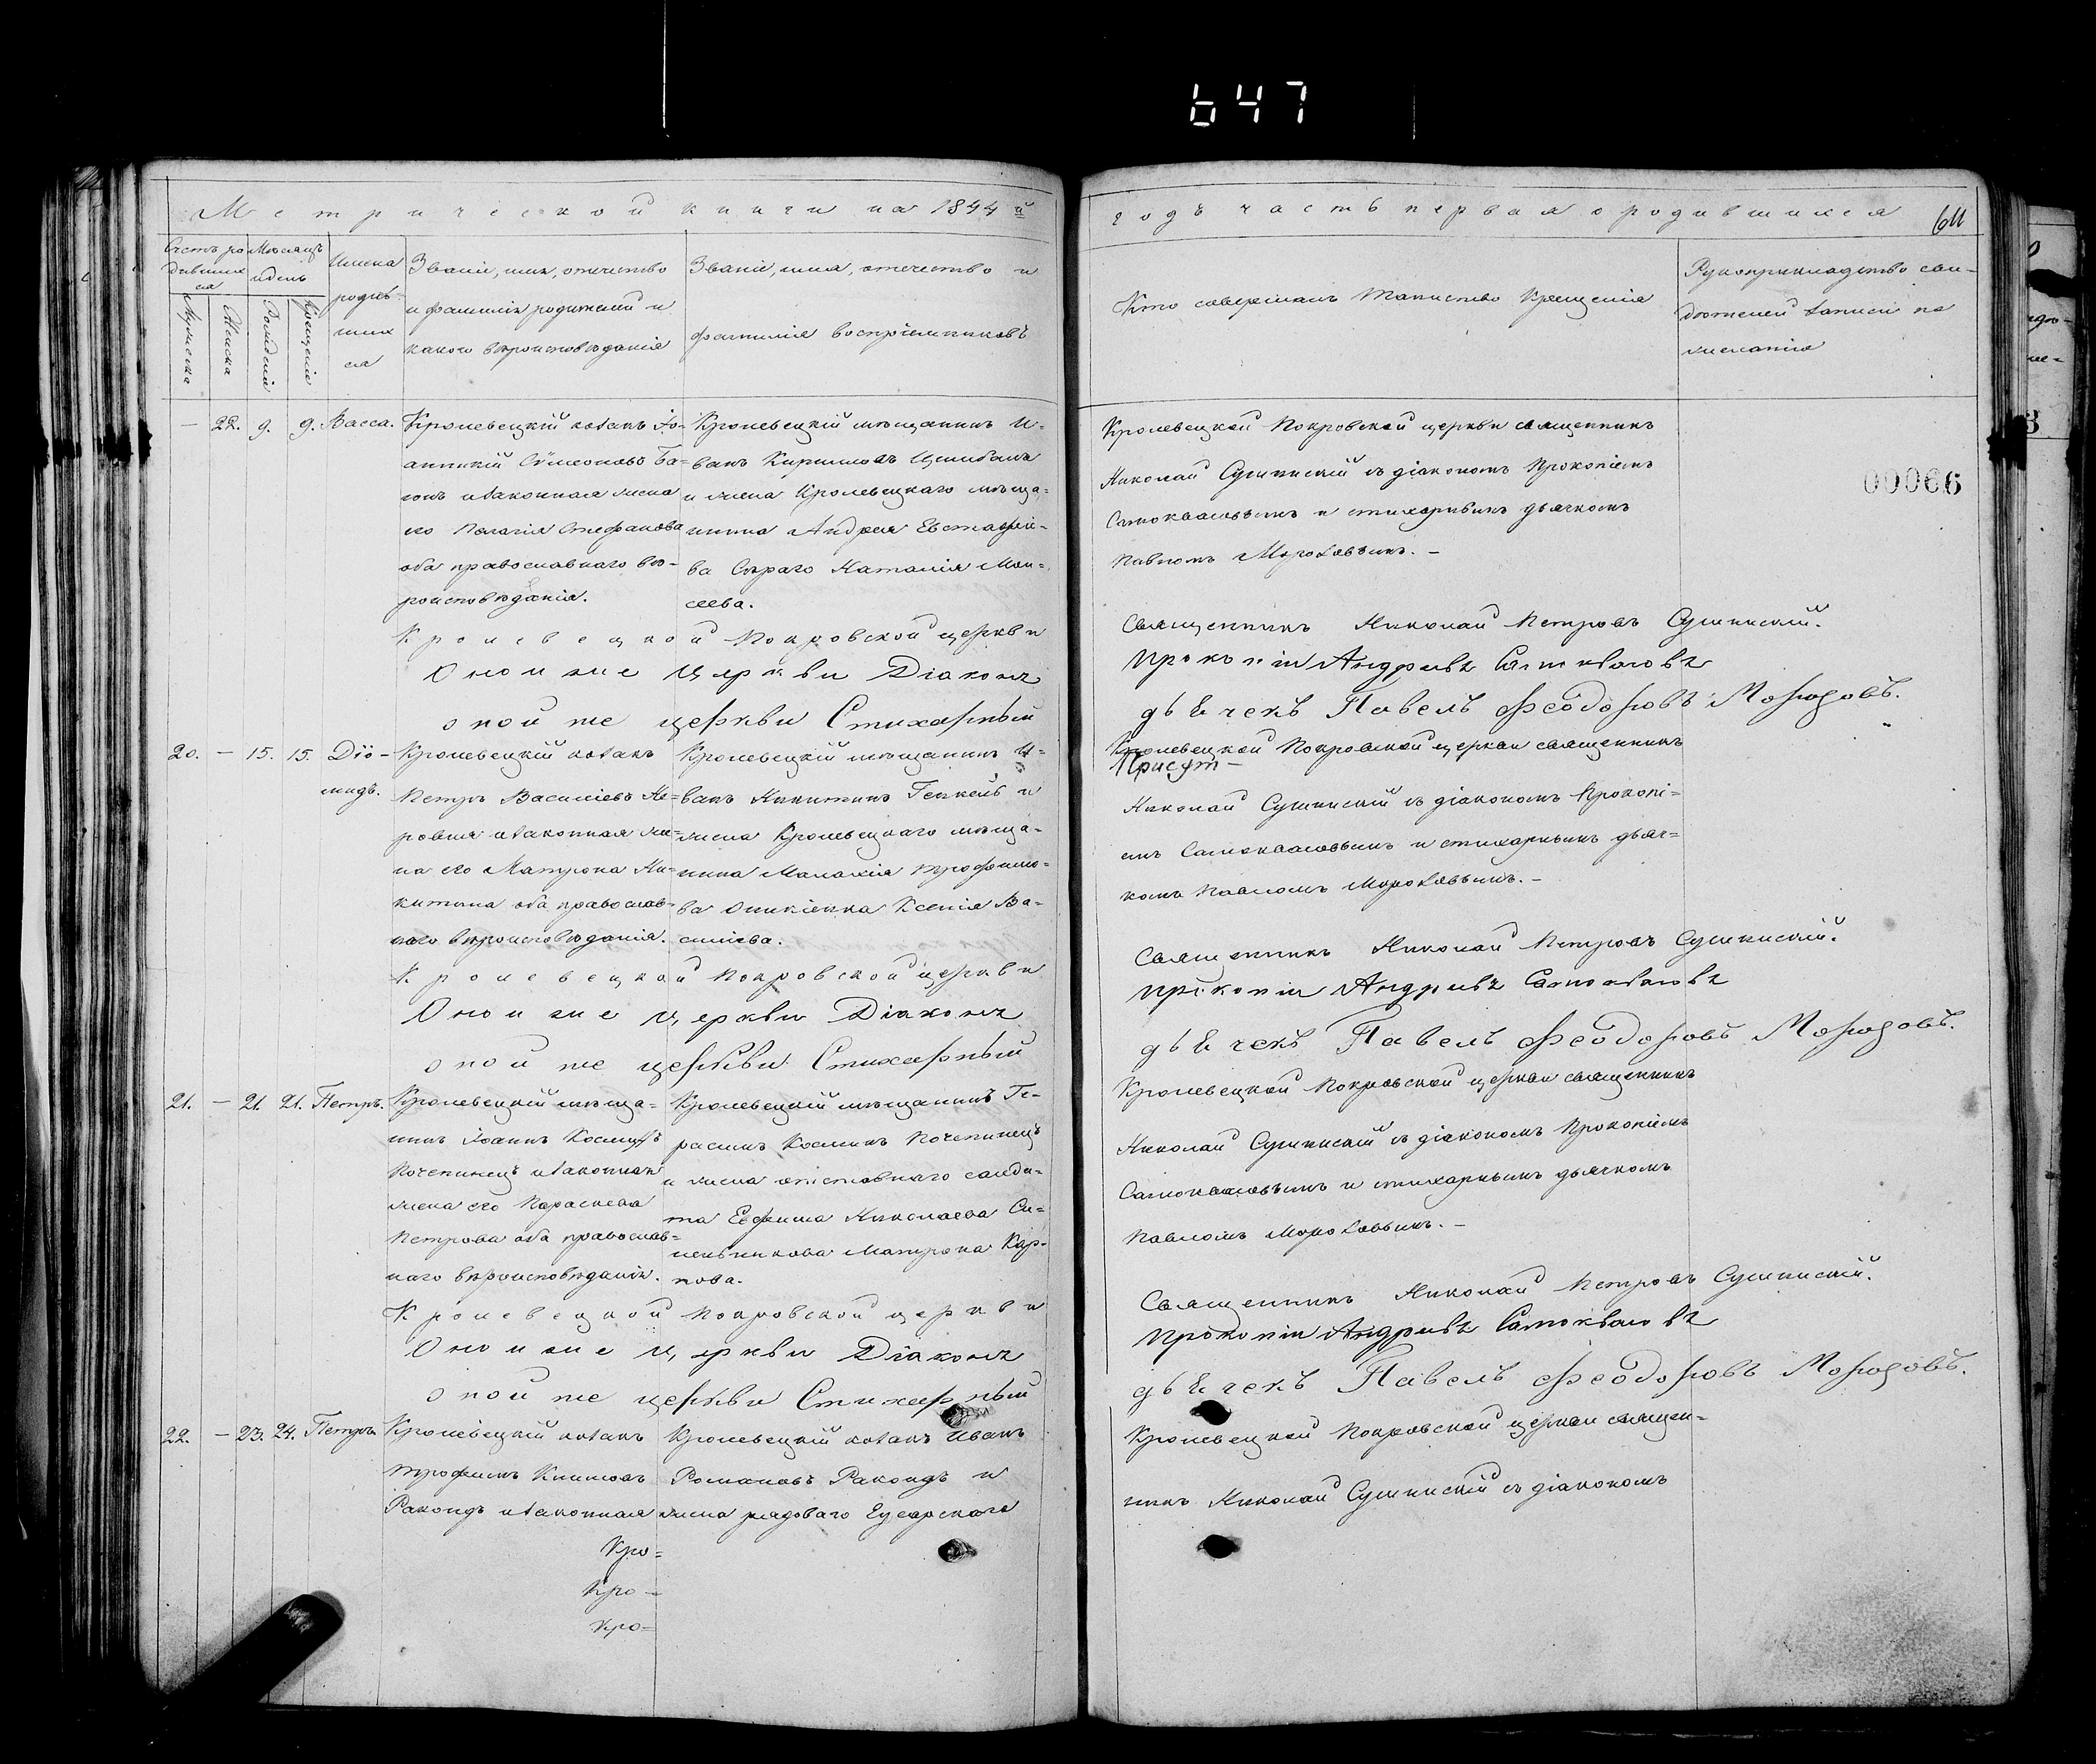 647
Метрической книги на 1844й
годъ часть первая о родившихся
Счетъ ро
дивших
ся
Мужеска
Женска
Мѣсяцъ
и день
Рожденія
Крещенія
Имена
родив-
ших
ся
Званіе, имя, отчество
и фамилія родителей и
какого вѣроисповѣданія
Званіе, имя, отчество и
фамилія воспріемниковъ
Кто совершалъ таинство крещенія
Рукоприкладство сви-
дѣтелей записи по
желанію
00066
— 22. 9. 9. Васса.
Кролевецкій козакъ Іо-
анникій Сѵмеоновъ Ба-
и законная жена
его Пелагія Стефанова
оба православнаго вѣ-
роисповѣданія.
Кролевецкій мѣщанинъ И-
ванъ Кириловъ
и жена Кролевецкаго мѣща-
нина Андрея Евстафіе-
ва Сѣраго Наталія Мои-
сеева.
Кролевецкой Покровской церкви священникъ
Николай Сушинскій съ діакономъ Прокопіемъ
Самоквасовымъ и стихарнымъ дьячкомъ
Павломъ Морозовымъ. —
Кролевецкой Покровской церкви Священникъ Николай Петровъ Сушинскій.
Оной же Церкви Діаконъ Прокопій Андріевъ Самоквасовъ
оной же церкви Стихарный дьячекъ Павелъ Феодоровъ Морозовъ.
20. — 15. 15. Діо-
мидъ.
Кролевецкій козакъ
Петръ Василіевъ Не-
и законная же-
на его Матрона Ни-
китина оба православ-
наго вѣроисповѣданія.
Кролевецкій мѣщанинъ И-
ванъ Никитинъ и
жена Кролевецкаго мѣща-
нина Малахія Трофимо-
ва Ксенія Ва-
силіева.
Кролевецкой Покровской церкви священникъ
Николай Сушинскій съ діакономъ Прокопі-
емъ Самоквасовымъ и стихарнымъ дьяч-
комъ Павломъ Морозовымъ. —
Кролевецкой Покровской церкви Священникъ Николай Петровъ Сушинскій.
Оной же Церкви Діаконъ Прокопій Андріевъ Самоквасовъ
оной же церкви Стихарный дьячекъ Павелъ Феодоровъ Морозовъ.
21. — 21. 21. Петръ.
Кролевецкій мѣща-
нинъ Іоаннъ Косминъ
Почепинецъ и законная
жена его Параскева
Петрова оба православ-
наго вѣроисповѣданія.
Кролевецкій мѣщанинъ Ге-
расимъ Косминъ Почепинецъ
и жена отставнаго солда-
та Евфима Николаева Си-
Матрона Кар-
пова.
Кролевецкой Покровской церкви священникъ
Николай Сушинскій съ діакономъ Прокопіемъ
Самоквасовымъ и стихарнымъ дьячкомъ
Павломъ Морозовымъ. —
Кролевецкой Покровской церкви Священникъ Николай Петровъ Сушинскій.
Оной же Церкви Діаконъ Прокопій Андріевъ Самоквасовъ
оной же церкви Стихарный дьячекъ Павелъ Феодоровъ Морозовъ.
22. — 23. 24. Петръ
Кролевецкій козакъ
Трофимъ Климовъ
Ракоидъ и законная
Кролевецкій козакъ Иванъ
Романовъ Ракоидъ и
жена рядоваго Гусарскаго
Кролевецкой Покровской церкви священ-
никъ Николай Сушинскій съ діакономъ
Кро-
Кро-
Кро-